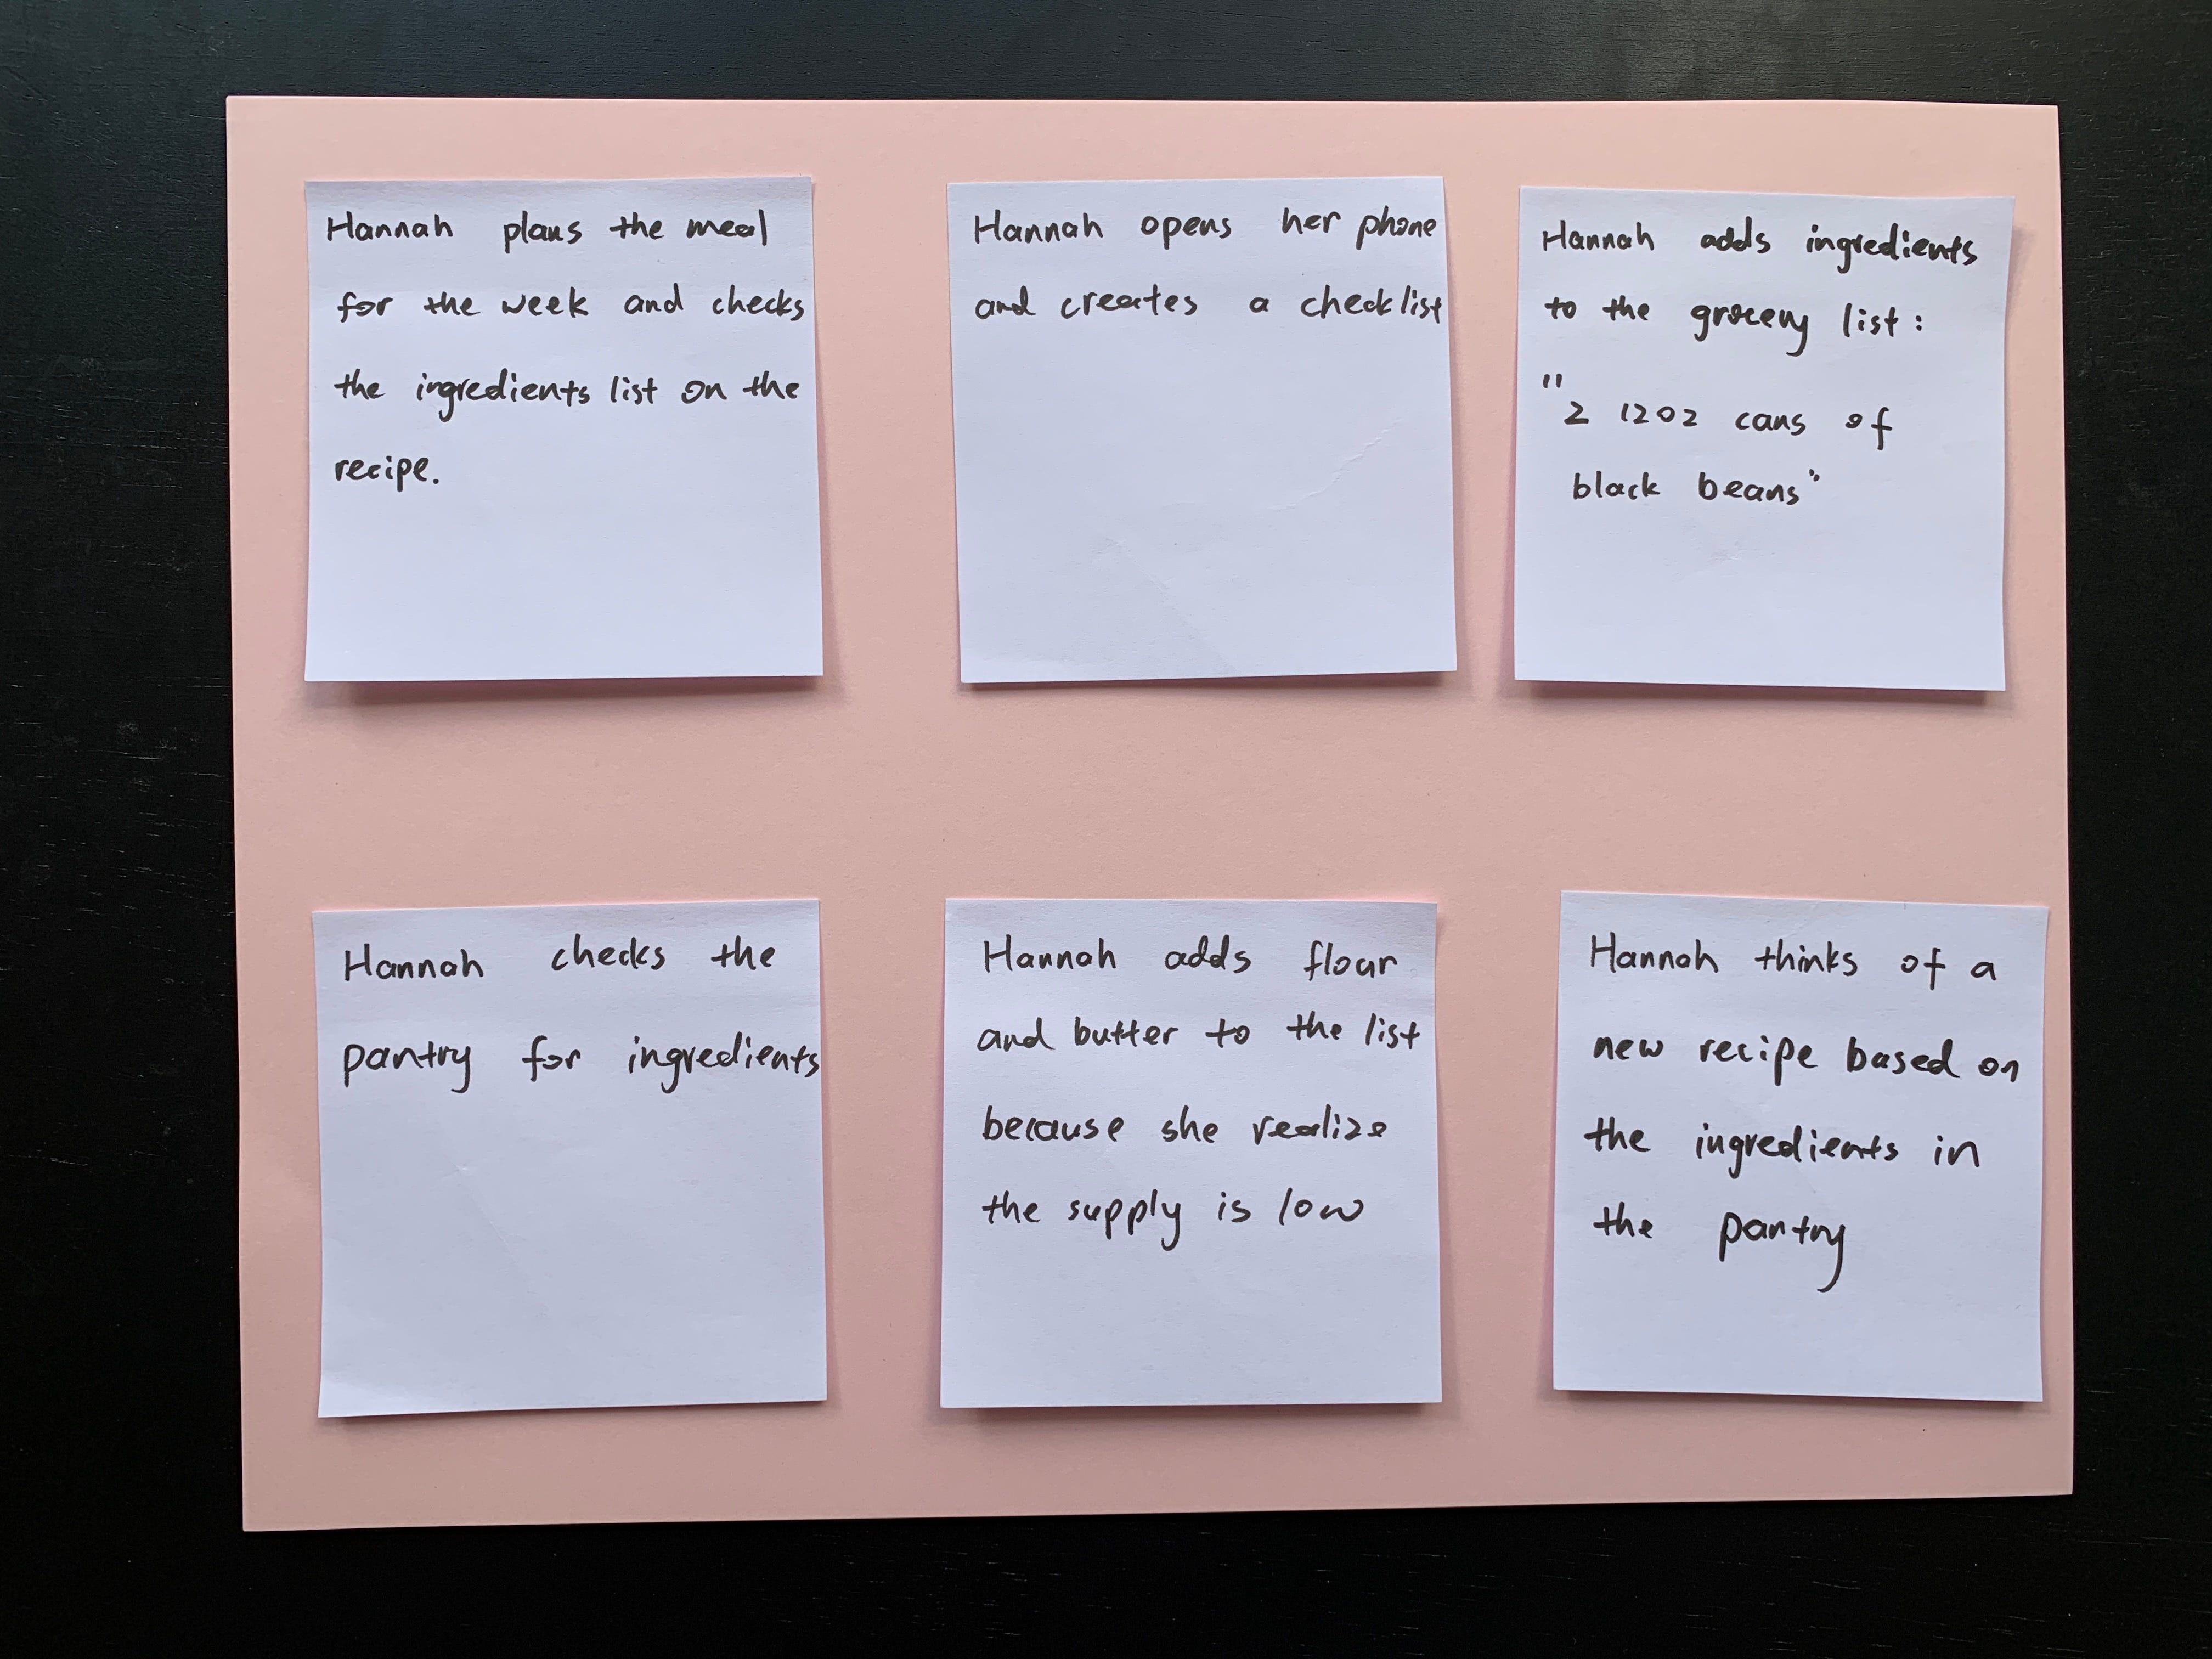 Hannah plans the meal
for the week and checks
the ingredients list on the
recipe.
Hannah opens her phone
and creates a checklist
Hannah adds ingredients
to the grocery list:
"2 12oz cans of
black beans"
Hannah checks the
pantry for ingredients
Hannah adds flour
and butter to the list
because she realize
the supply is low
Hannah thinks of a
new recipe based on
the ingredients in
the pantry